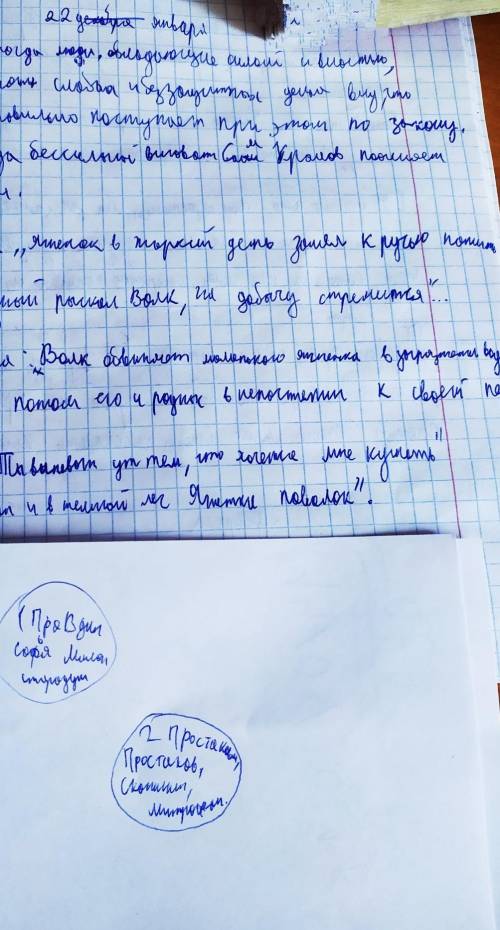 22 декабря января
когда люди, обладающие силой и властью,
слабая и беззащитная делая вид, что
поступает при этом по закону.
бессильный виноват Сам Крылов поясняет
„Ягненок в жаркий день зашел к ручью напиться
рыскал Волк, на добычу стремится"...
: Волк обвиняет маленького ягненка в загрязнении
потом его и родных в непочтении к своей
ты виноват уж тем, что хочется мне кушать"
и в темный лес Ягненка поволок".
1 Правдин
Софья Милон
стародум
2 Простакова,
Простаков,
Скотинин,
Митрофан.